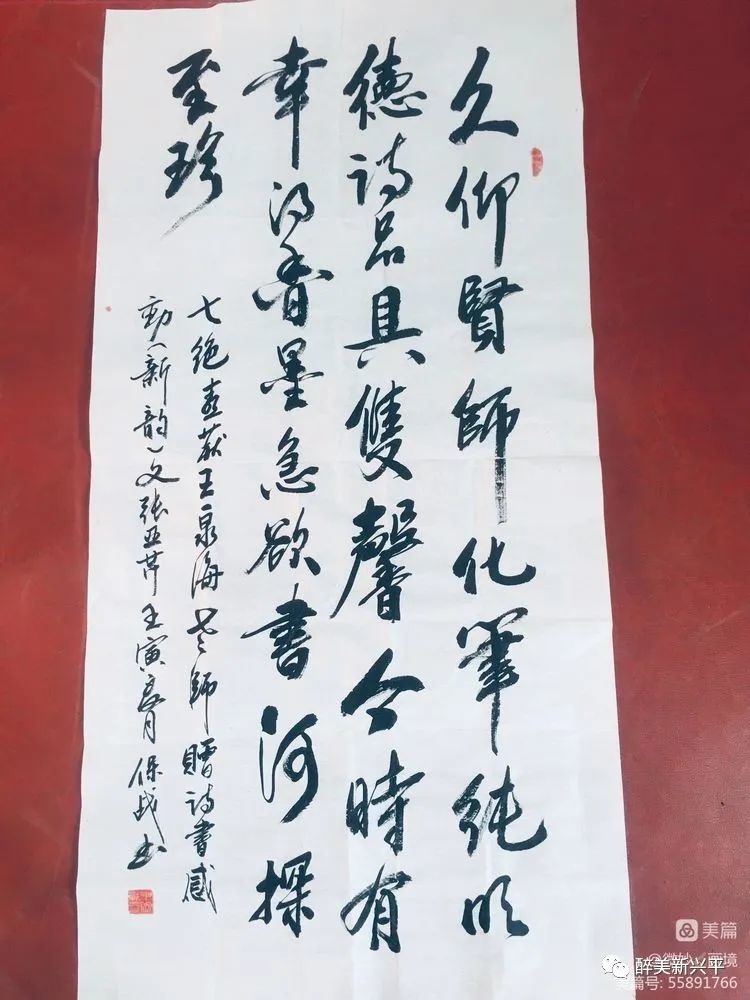 久仰賢師化筆純以
德詩品具雙馨今時有
幸得香墨急欲書河探
至珍
七絕喜获王泉海老師贈詩書感
勤(新韵)文张亚芹 壬寅春月保战书
美篇
醉美新兴平
美篇号: 55891766